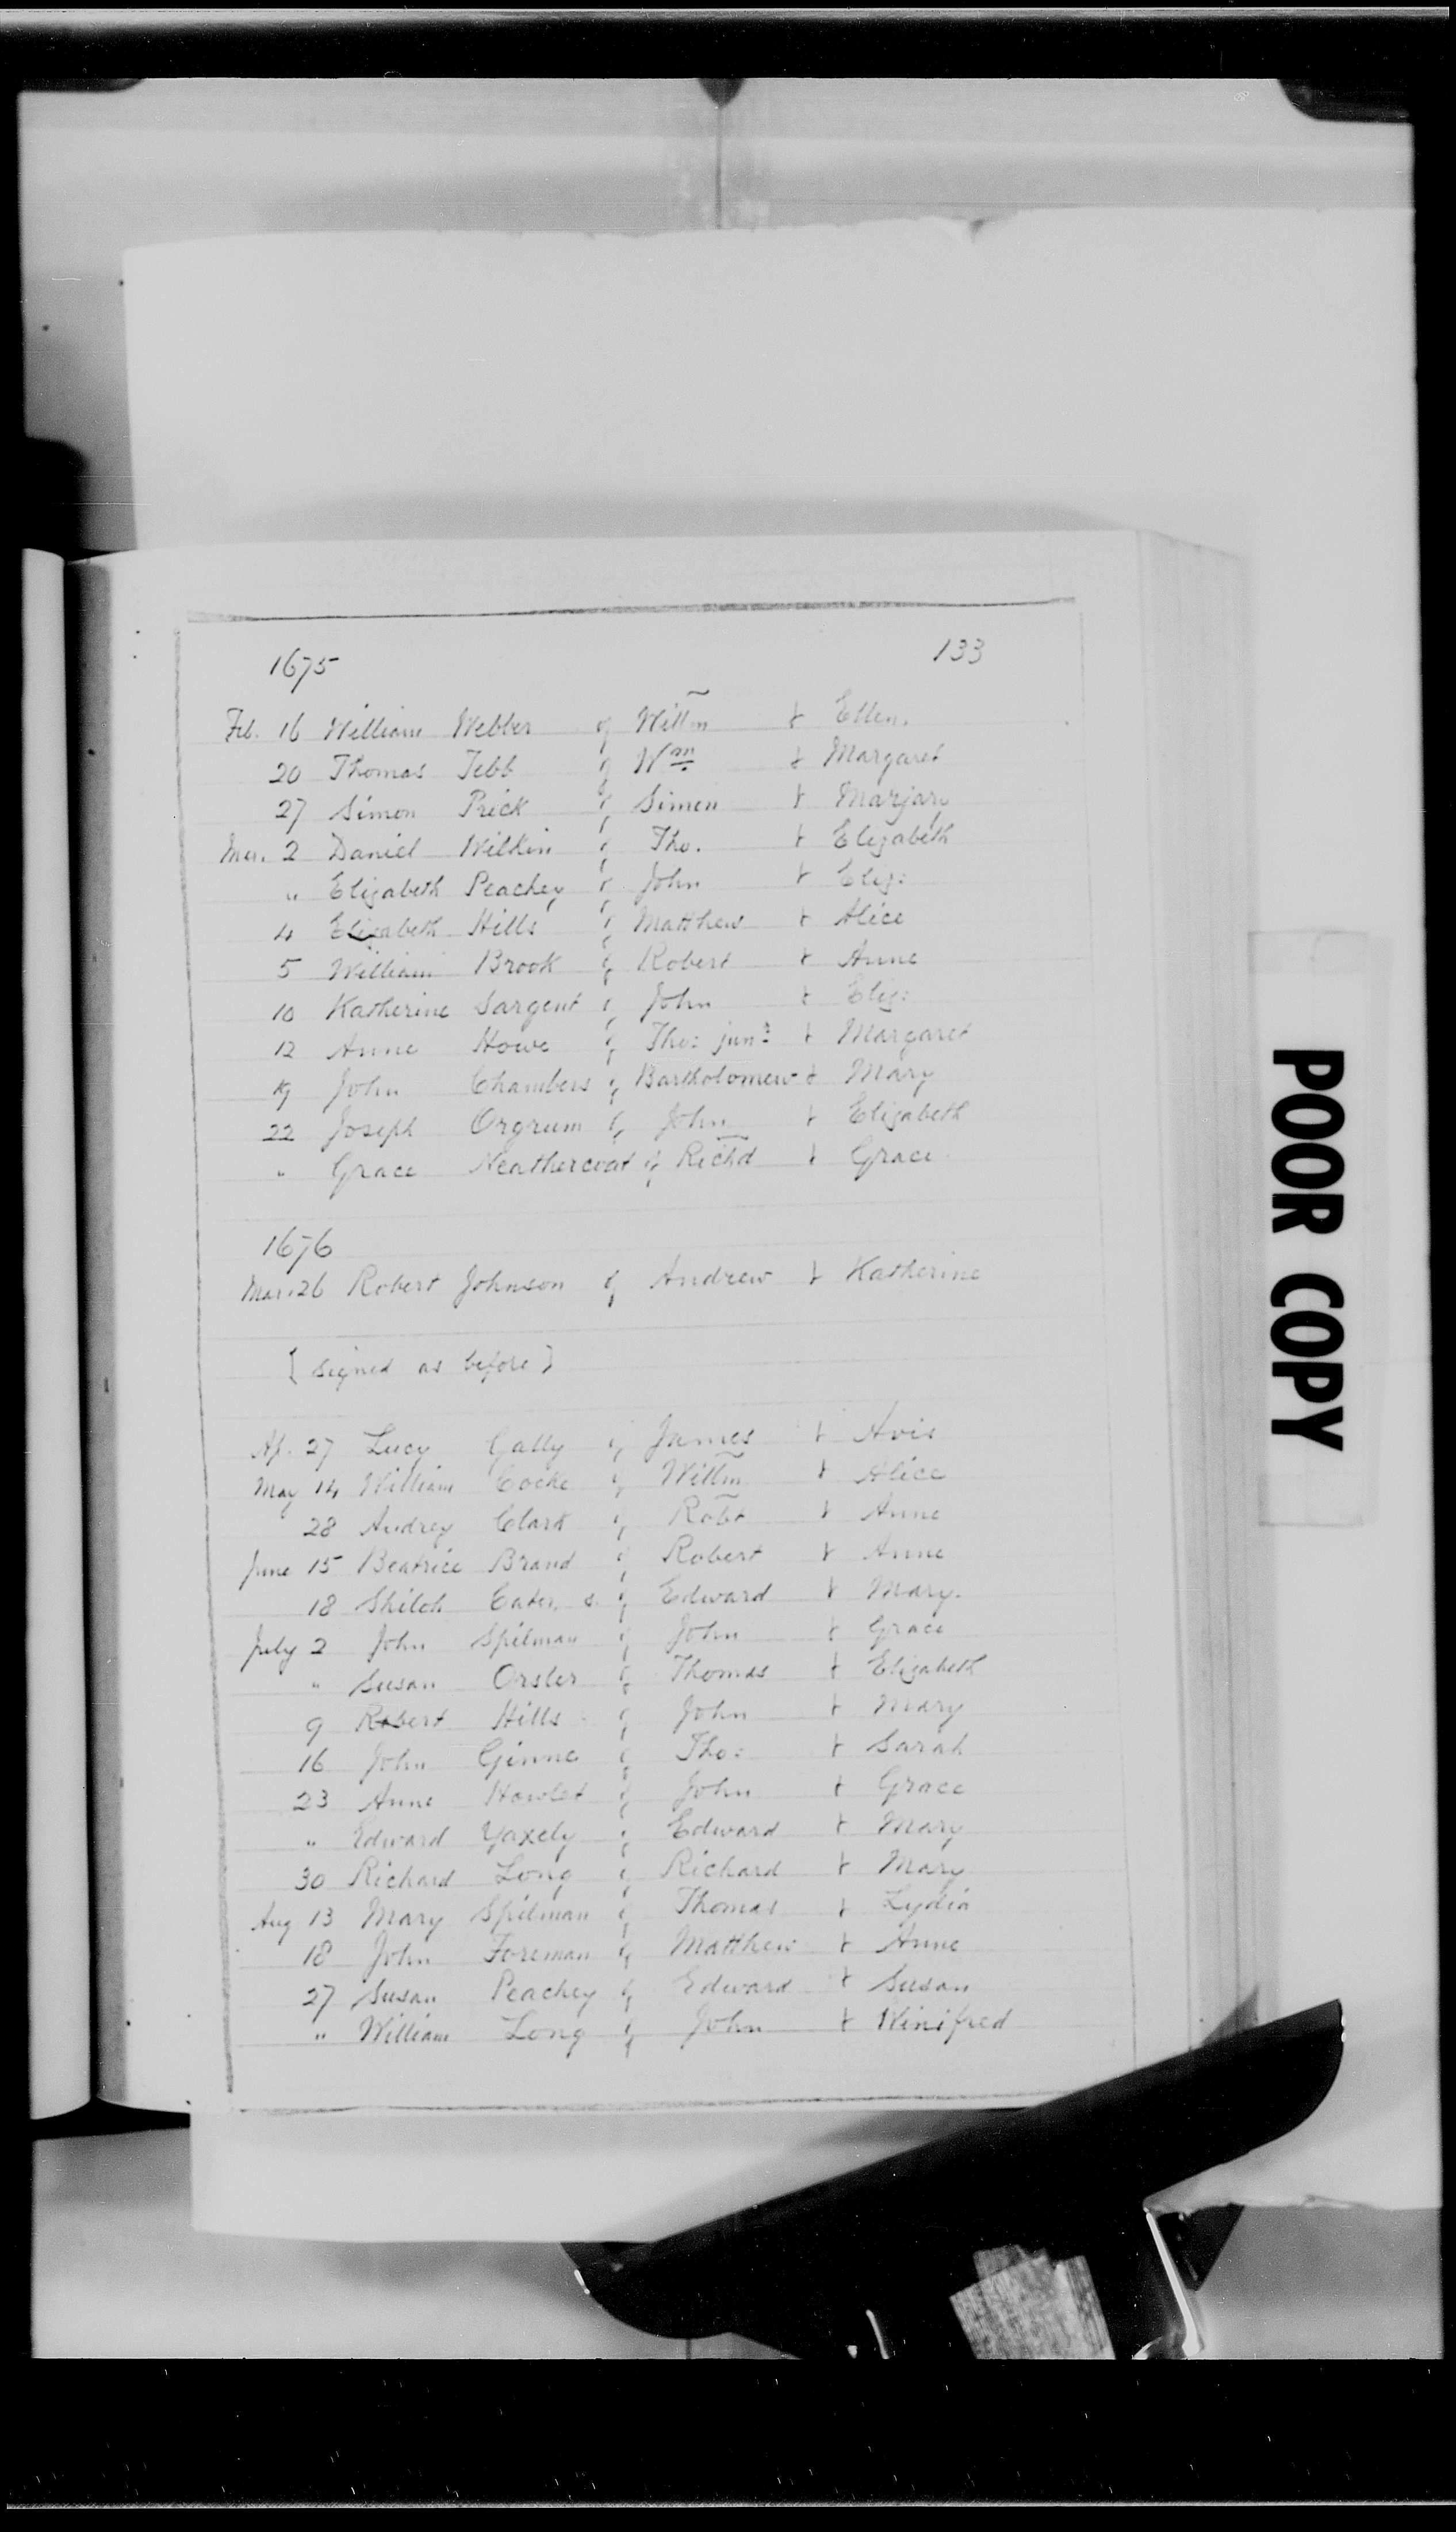 1675 133
Feb. 16 William Webber of Willm & Ellen.
20 Thomas Tebb of Wm & Margaret
27 Simon Prick of Simon & Marjary
Mar. 2 Daniel Wilkin of Tho. & Elizabeth
" Elizabeth Peachey of John & Eliz:
4 Elizabeth Hills of Matthew & Alice
5 William Brook of Robert & Anne
10 Katherine Sargent of John & Eliz:
12 Anne Howe of Tho: junr & Margaret
19 John Chambers of Bartholomew & Mary
22 Joseph Orgrum of John & Elizabeth
" Grace Neathercoat of Richd & Grace
1676
Mar. 26 Robert Johnson of Andrew & Katherine
[signed as before]
Ap. 27 Lucy Gally of James & Avis
May 14 William Cocke of Willm & Alice
28 Audrey Clark of Robt & Anne
June 15 Beatrice Brand of Robert & Anne
18 Shiloh s. of Edward & Mary.
July 2 John Spilman of John & Grace
" Susan Orsler of Thomas & Elizabeth
9 Robert Hills of John & Mary
16 John Ginne of Tho: & Sarah
23 Anne Howlet of John & Grace
" Edward Yaxely of Edward & Mary
30 Richard Long of Richard & Mary
Aug 13 Mary Spilman of Thomas & Lydia
18 John Foreman of Matthew & Anne
27 Susan Peachey of Edward & Susan
" William Long of John & Winifred
POOR COPY